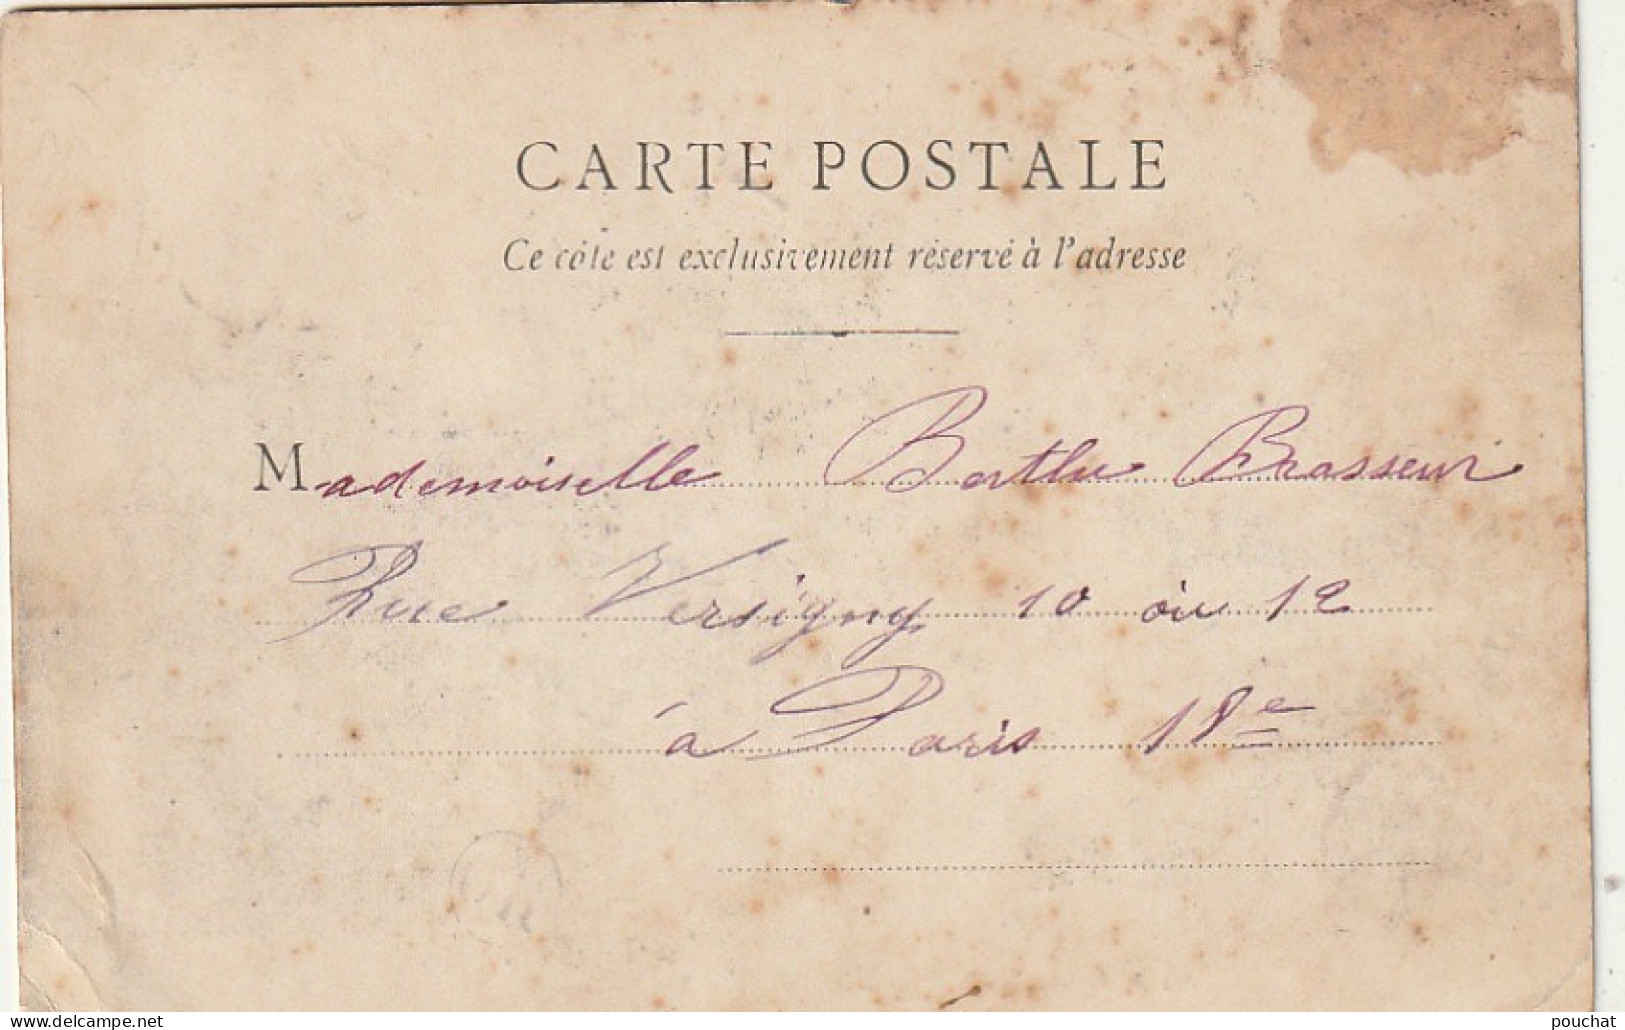 CARTE POSTALE
Ce côté est exclusivement réservé à l'adresse
Mademoiselle Berthe Brasseur
Rue Versigny 10 où 12
à Paris 18e
pouchat